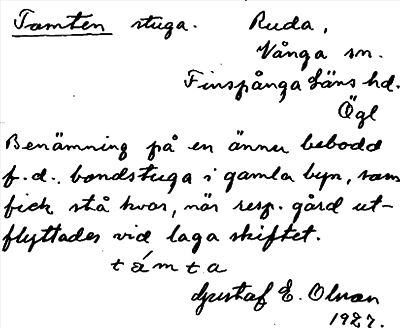 Tomten stuga. Ruda,
Vånga sn.
Finspånga Läns hd.
Ögl
Benämning på en ännu bebodd
f.d. bondstuga i gamla byn, som
fick stå kvar, när resp. gård ut-
flyttades vid laga skiftet.
támta
Gustaf E. Olson
1927.